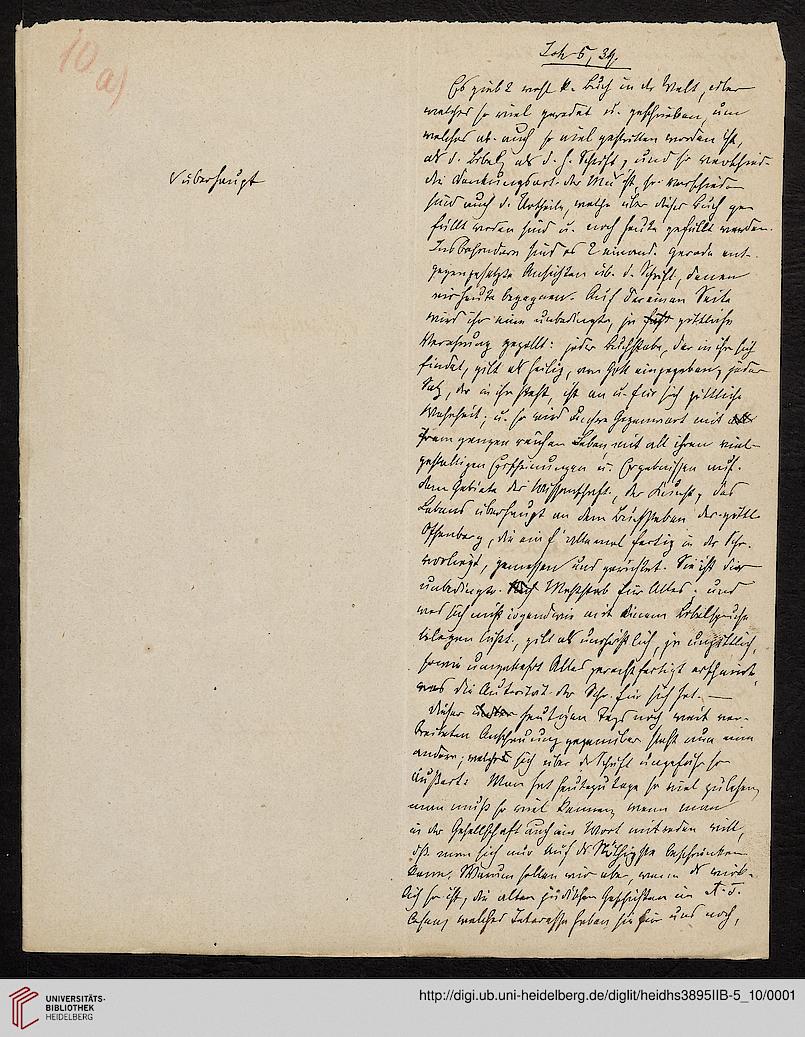 10
a)
überhaupt
Joh 5, 39.
Es giebt wohl k. Buch in der Welt, über
welches so viel geredet u. geschrieben, um
welches ab. auch so viel gestritten worden ist,
als d. Bibel, als d. h. Schrift, und so verschied
die Denkungsart der Mn ist, so verschieden
sind auch d. Urtheile, welche über dieses Buch ge
fällt worden sind u. noch heute gefällt werden.
Insbesondere sind es 2 einand. gerade ent-
gegengesetzte Ansichten üb. d. Schrift, denen
wir heute begegnen. Auf der einen Seite
wird ihr eine unbedingte, ja göttliche
Verehrung gezollt: jeder Buchstabe, der in ihr sich
findet, gilt als heilig, von Gott eingegeben, jeder
Satz, der in ihr steht, ist an u. für sich göttliche
Wahrheit; u. so wird unsre Gegenwart mit
ihrem ganzen reichen Leben, mit all ihren viel-
gestaltigen Erscheinungen u. Ergebnissen auf
dem Gebiete der Wissenschaft, der Kunst, des
Lebens überhaupt an dem Buchstaben der göttl.
Offenbarg, die ein f. allemal fertig in der Schr.
vorliegt, gemessen und gerichtet. Sie ist der
unbedingte Maßstab für Alles, und
was sich nicht irgendwie mit einem Bibelspruche
belegen läßt, gilt als unchristlich, ja ungöttlich,
sowie umgekehrt Alles gerechtfertigt erscheint,
was die Autorität der Schr. für sich hat. —
Dieser heutigen Tags noch weit ver-
breiteten Anschauung gegenüber steht nun eine
andere, welche sich über d. Schrift ungefähr so
äußert: Man hat heutzutage so viel zu lesen,
man muß so viel kennen, wenn man
in der Gesellschaft auch ein Wort mitreden will,
dß. man sich nur auf das Nöthigste beschränken
kann. Warum sollen wir aber, wenn das wirk-
lich so ist, die alten jüdischen Geschichten im A. T.
lesen, welches Interesse haben sie für uns noch,
UNIVERSITÄTS-
BIBLIOTHEK
HEIDELBERG
http://digi.ub.uni-heidelberg.de/diglit/heidhs3895IIB-5_10/0001